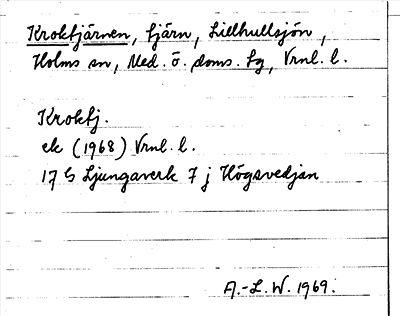 Kroktjärnen, tjärn, Lillhullsjön,
Holms sn, Med. ö. doms. tg, Vrnl. l.
Kroktj.
ek (1968) Vrnl. l.
17 G Ljungaverk 7 j Högsvedjan
A.-L. W. 1969.